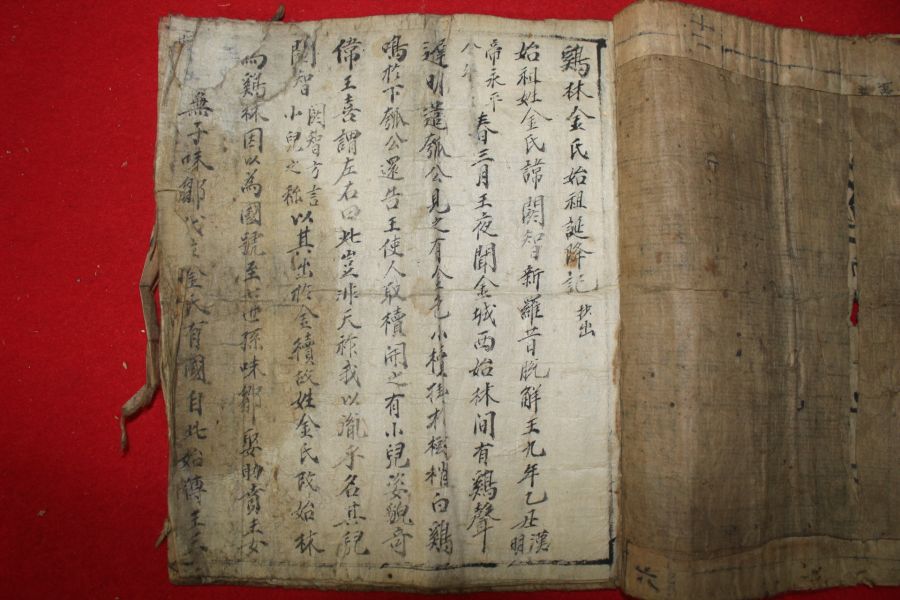 鷄林金氏始祖誕降記 抄出
始祖姓金氏諱閼智新羅昔脫解王九年乙丑漢明
帝永平八年春三月王夜聞金城西始林間有鷄聲
遲明遣瓠公見之有金色小櫝掛于樹梢白鷄
鳴於下瓠公還告王使人取櫝開之有小兒姿貌奇
偉王喜謂左右曰此豈非天祚我以胤乎名其兒
閼智閼智方言小兒之称以其出於金櫝故姓金氏改始林
爲鷄林因以為國號至七世孫味鄒娶助賁王女
無子味鄒代立金氏有國自此始傳王